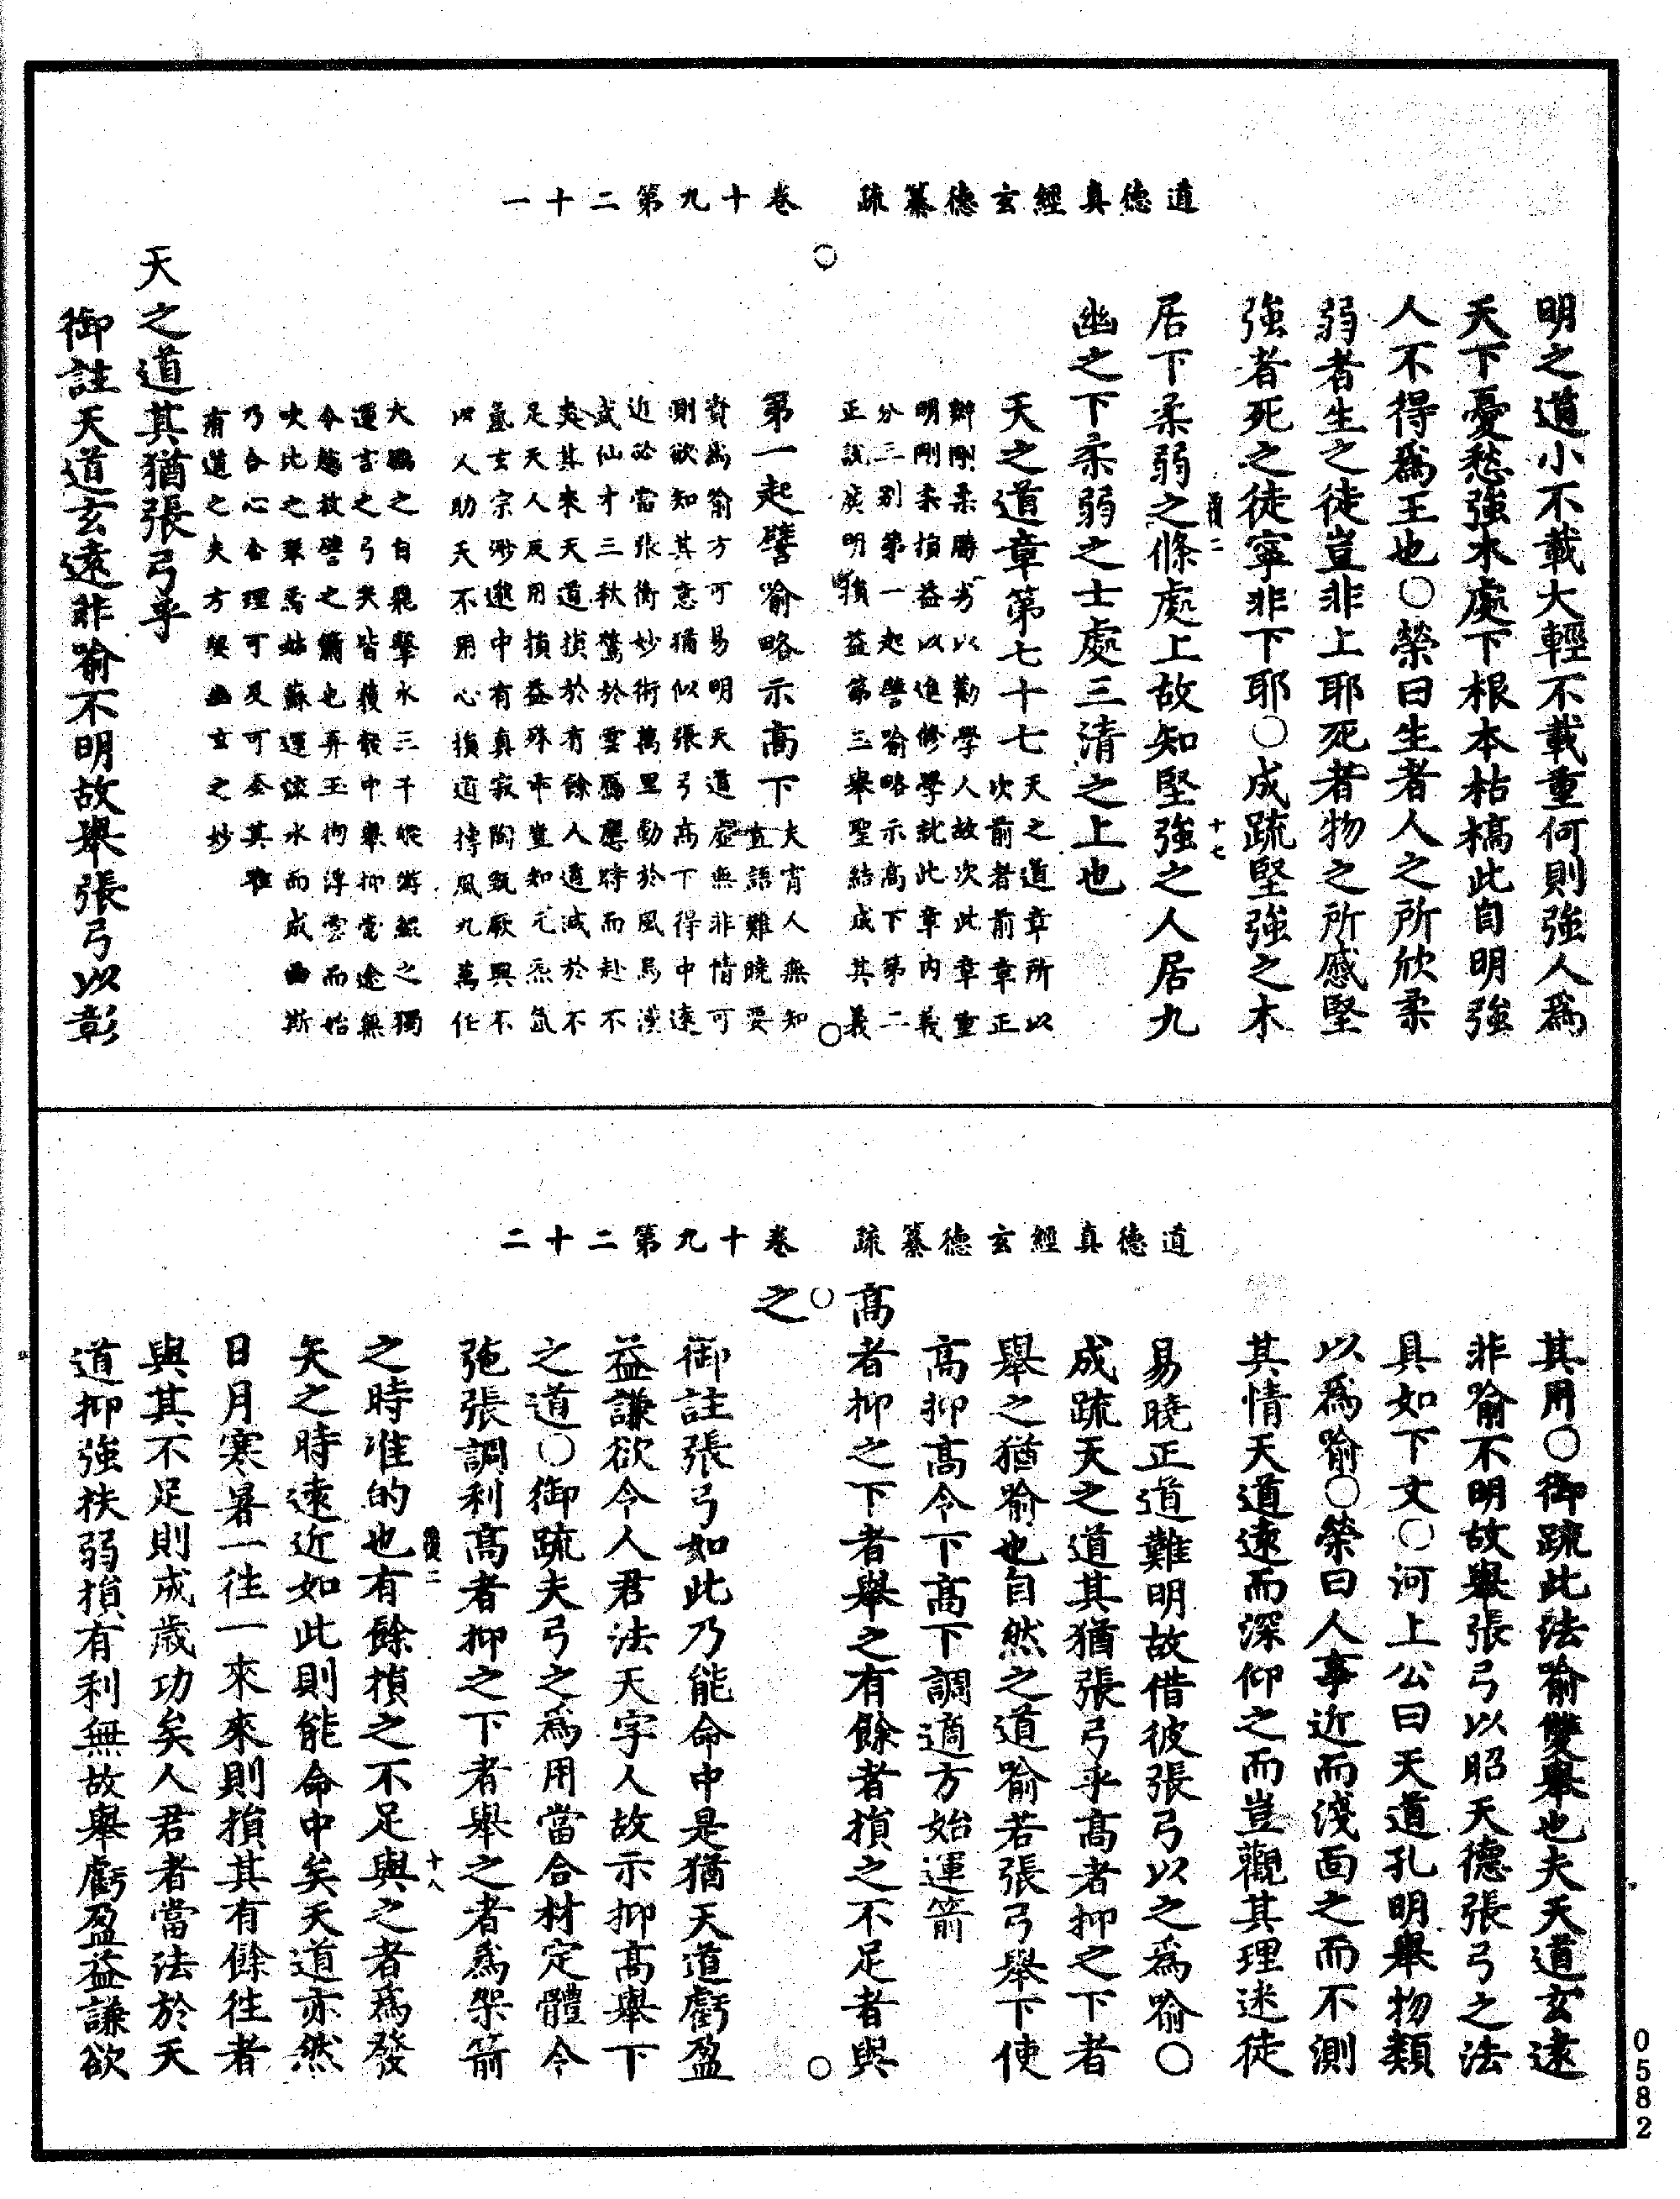 道德真經玄德纂疏　卷十九第二十一
明之道小不載大輕不載重何則強人爲
天下憂愁強木處下根本枯槁此自明強
人不得爲王也○榮曰生者人之所欣柔
弱者生之徒豈非上耶死者物之所慼堅
強者死之徒寧非下耶○成疏堅強之木
居下柔弱之條處上故知堅強之人居九
十七
幽之下柔弱之士處三清之上也
天之道章第七十七
天之道章所以
次前者前章正
辯剛柔勝劣以勸學人故次此章重
明剛柔損益以進修學就此章內義
分三別第一起譬喻略示高下第二
正說廣明損益第三舉聖結成其義
○
○
第一起譬喻略示高下
夫肓人無知
直語難曉要
資爲喻方可易明天道虛無非情可
測欲知其意猶似張弓高下得中遠
近必當張衡妙術萬里動於風烏漢
武仙才三秋驚於雲鴈應時而赴不
爽其來天道損於有餘人道減於不
足天人反用損益殊
豈知元炁氤
氳玄宗渺邈中有真寂陶甄厥興不
以人助天不用心損道摶風九萬任
大鵬之自飛擊水三千
游鯤之獨
運言之弓矢皆獲彀中舉抑當途無
令越故譬之
也弄玉
雲而始
吹比之
焉姑蘇運
水而成
斯
乃合心合理可及可
其
有道之夫方
幽玄之妙
天之道其猶張弓乎
御註天道玄遠非喻不明故舉張弓以彰
道德真經玄德纂疏　卷十九第二十二
其用○御疏此法喻雙舉也夫天道玄遠
非喻不明故舉張弓以昭天德張弓之法
具如下文○河上公曰天道孔明舉物類
以爲喻○榮曰人事近而淺面之而不測
其情天道遠而深仰之而豈觀其理迷徒
易曉正道難明故借彼張弓以之爲喻○
成疏天之道其猶張弓乎高者抑之下者
舉之猶喻也自然之道喻若張弓舉下使
高抑高令下高下調適方始運箭
高者抑之下者舉之有餘者損之不足者與
○
○
之
御註張弓如此乃能命中是猶天道虧盈
益謙欲令人君法天字人故示抑高舉下
之道○御疏夫弓之爲用當合材定體令
弛張調利高者抑之下者舉之者爲架箭
之時准的也有餘損之不足與之者爲發
十八
矢之時遠近如此則能命中矣天道亦然
日月寒暑一往一來來則損其有餘往者
與其不足則成歲功矣人君者當法於天
道抑強扶弱損有利無故舉虧盈益謙欲
0582